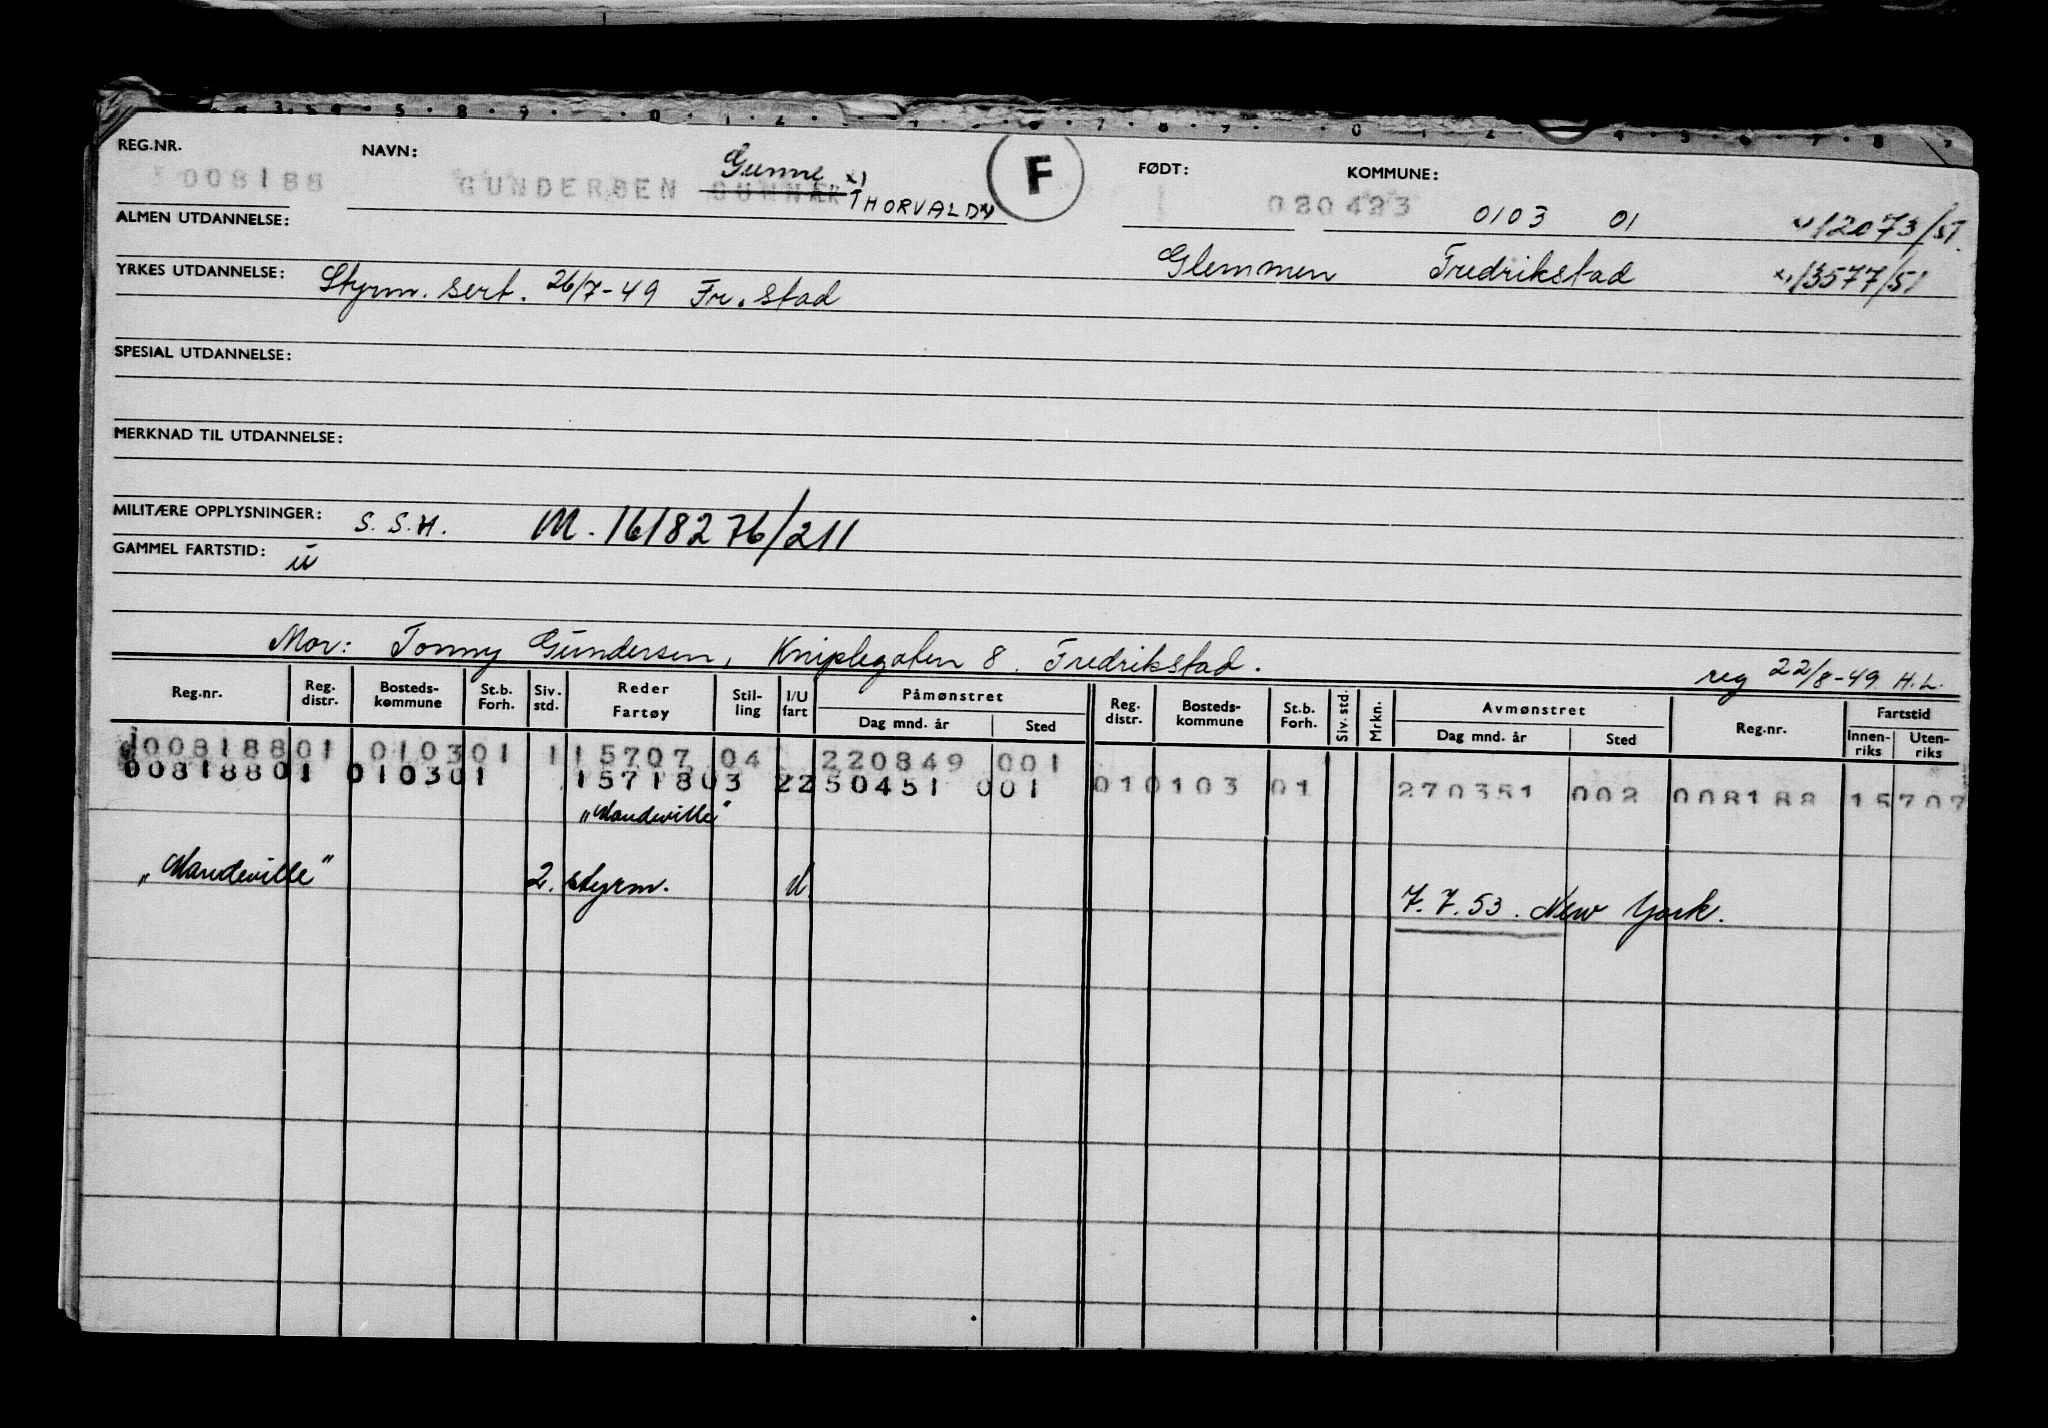 REG.NR. 008188 NAVN: GUNDERSEN GUNNAR Gunne x) THORVALD x) F FØDT: 020423 KOMMUNE: 0103 01 x) 12073/51.
ALMEN UTDANNELSE: Glemmen Fredrikstad x) 13577/51
YRKES UTDANNELSE: Styrm. sert. 26/7-49 Fr.stad
SPESIAL UTDANNELSE:
MERKNAD TIL UTDANNELSE:
MILITÆRE OPPLYSNINGER: S.S.H. M.1618276/211
GAMMEL FARTSTID: ü
Mor: Tonny Gundersen, Kniplegaten 8. Fredrikstad. reg 22/8-49 H.L.
Reg.nr. Reg. distr. Bosteds-kommune St.b. Forh. Siv. std. Reder Fartøy Stil-ling I/U fart Påmønstret Dag mnd. år Sted Reg. distr. Bosteds-kommune St.b. Forh. Siv. std. Mrkn. Avmønstret Dag mnd. år Sted Reg.nr. Fartstid Innen-riks Uten-riks
008188 01 0103 01 1 15707 04 220849 001
008188 01 0103 01 15718 03 2 250451 001 01 0103 01 270351 002 008188 15707
"Mandeville"
"Mandeville" 2. styrm. U 7.7.53. New York.